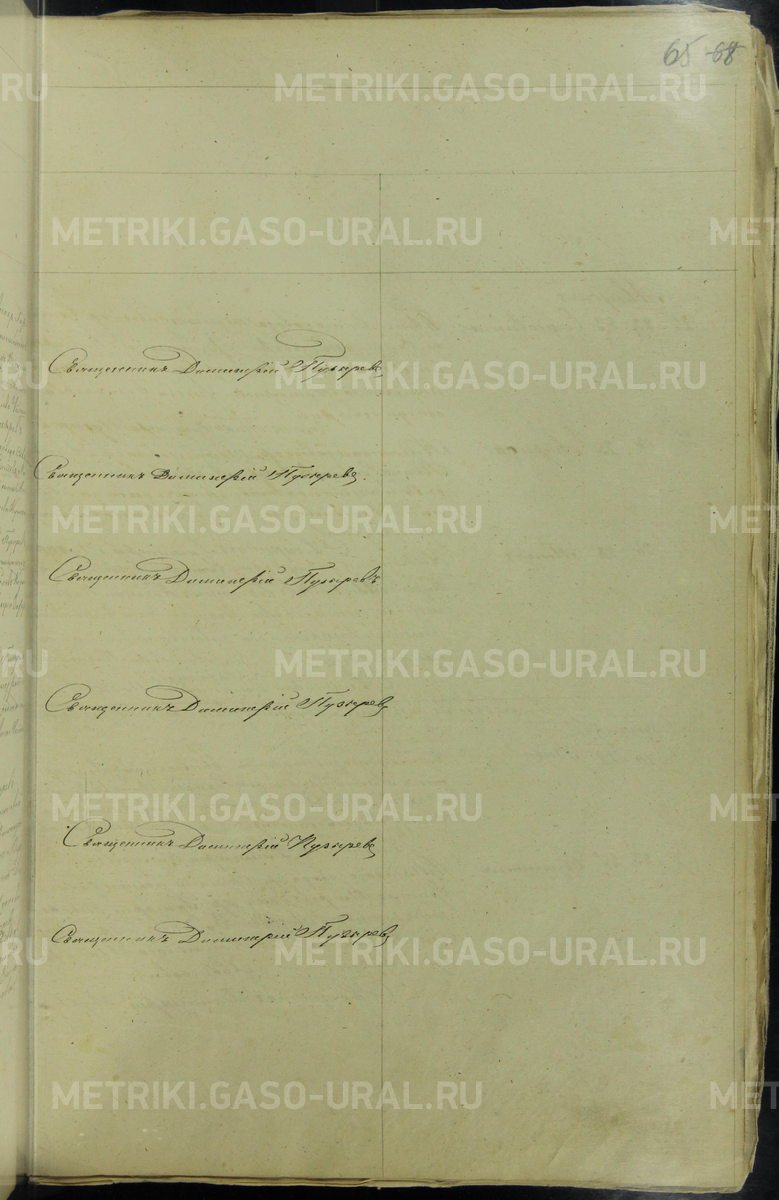 65 68
METRIKI.GASO-URAL.RU
METRIKI.GASO-URAL.RU
Священникъ Димитрій Пузыревъ
METRIKI.GASO-URAL.RU
Священникъ Димитрій Пузыревъ.
METRIKI.GASO-URAL.RU
Священникъ Димитрій Пузыревъ
METRIKI.GASO-URAL.RU
Священникъ Димитрій Пузыревъ
METRIKI.GASO-URAL.RU
Священникъ Димитрій Пузыревъ
Священникъ Димитрій Пузыревъ
METRIKI.GASO-URAL.RU
METRIKI.GASO-URAL.RU